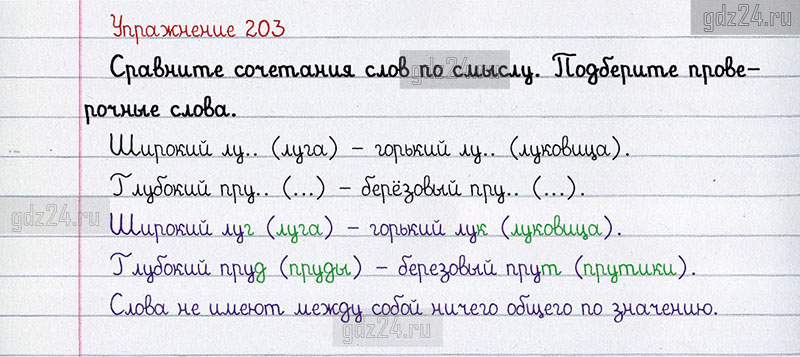 gdz24.ru
Упражнение 203
Сравните сочетания слов по смыслу. Подберите прове-
gdz24.ru
рочные слова.
Широкий лу.. (луга) – горький лу.. (луковица).
Глубокий пру.. (...) – берёзовый пру.. (...).
gdz24.ru
Широкий луг (луга) – горький лук (луковица).
Глубокий пруд (пруды) – березовый прут (прутики).
Слова не имеют между собой ничего общего по значению.
gdz24.ru